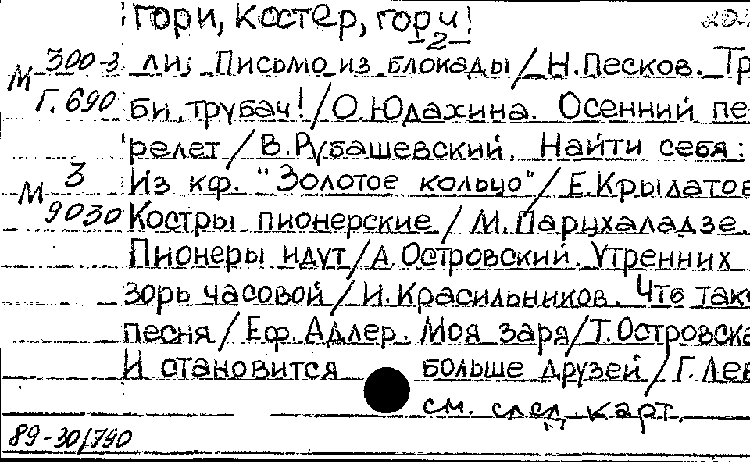 Гори, костер, гори!
-2-
М 300-3 ли; Письмо из блокады / Н. Песков. Тр
Г. 690 би, трубач! / О. Юдахина. Осенний пе
релет / В. Рубашевский. Найти себя:
М 3 Из кф. "Золотое кольцо" / Е. Крылатов
9030 Костры пионерские / М. Парцхаладзе.
Пионеры идут / А. Островский. Утренних
зорь часовой / И. Красильников. Что так
песня / Еф. Адлер. Моя заря / Т. Островска
И становится больше друзей / Г. Лев
см. след. карт.
89-30/790